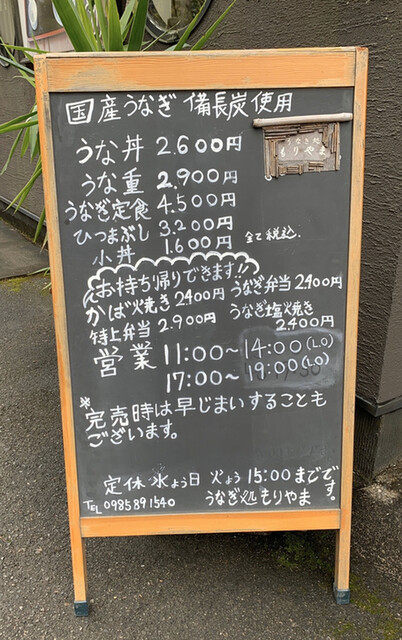 国産うなぎ 備長炭使用
うなぎ処
もりやま
うな丼 2.600円
うな重 2.900円
うなぎ定食 4.500円
ひつまぶし 3.200円
小丼 1.600円 全て税込.
お持ち帰りできます!!
かば焼き 2400円 うなぎ弁当 2.400円
特上弁当 2.900円 うなぎ塩焼き 2.400円
営業 11:00~14:00(L.O)
17:00~19:00(L.O)
※完売時は早じまいすることも
ございます。
定休 水よう日 火よう 15:00 までです。
TEL 0985891540 うなぎ処もりやま